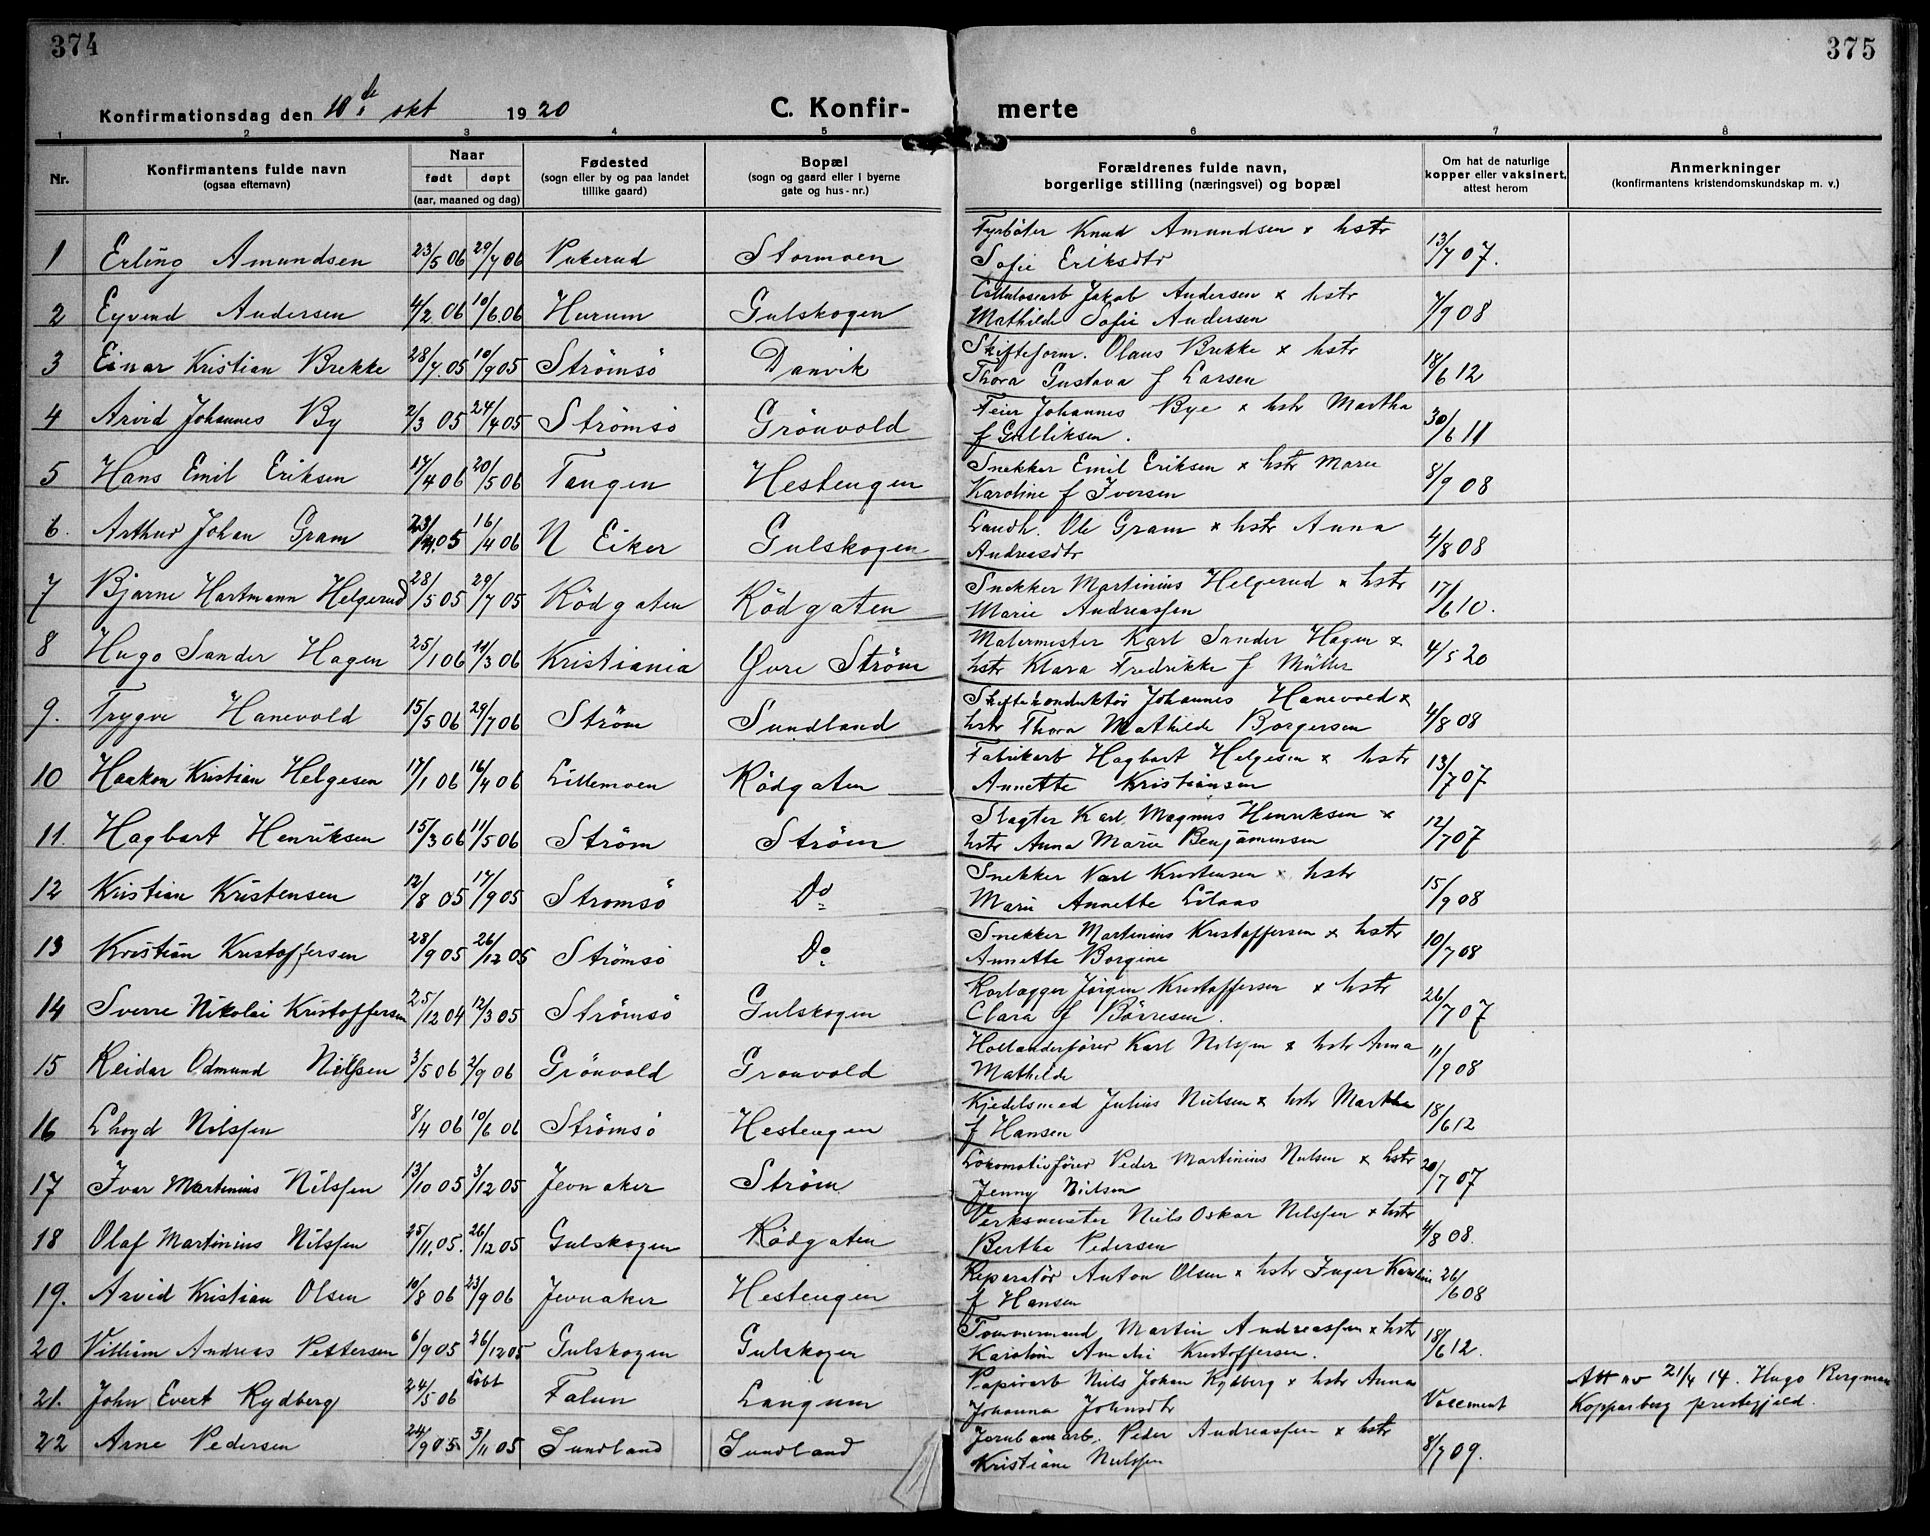 374
375
Konfirmationsdag den 10de okt 1920
C. Konfir-
merte
1 2 3 4 5 6 7 8
Nr.
Konfirmantens fulde navn
(ogsaa efternavn)
Naar
født døpt
(aar, maaned og dag)
Fødested
(sogn eller by og paa landet
tillike gaard)
Bopæl
(sogn og gaard eller i byerne
gate og hus-nr.)
Forældrenes fulde navn,
borgerlige stilling (næringsvei) og bopæl
Om hat de naturlige
kopper eller vaksinert,
attest herom
Anmerkninger
(konfirmantens kristendomskundskap m. v.)
1 Erling Amundsen 23/5 06 29/7 06 Stormoen Fyrbøter Knud Amundsen x hstr
Sofie Eriksdtr 13/7 07.
2 Eyvind Andersen 4/2 06 10/6 06 Hurum Gulskogen Cellulosearb Jakob Andersen x hstr
Mathilde Sofie Andersen 7/9 08
3 Einar Kristian Brekke 28/7 05 10/9 05 Strömsö Danvik Skifteform. Olaus Brekke x hstr
Thora Gustava f Larsen 18/6 12
4 Arvid Johannes By 2/3 05 24/4 05 Strömsö Grönvold Feier Johannes Bye x hstr Martha
f Gulliksen. 30/6 11
5 Hans Emil Eriksen 17/4 06 20/5 06 Tangen Hestengen Snekker Emil Eriksen x hstr Marie
Karoline f Iversen 8/9 08
6. Arthur Johan Gram 05 16/4 06 N Eiker Gulskogen Landh. Ole Gram x hstr Anna
Andreasdtr 4/8 08
7 Bjarne Hartmann Helgerud 28/5 05 29/7 05 Rödgaten Rödgaten Snekker Martinius Helgerud x hstr
Marie Andreassen 17/6 10.
8 Hugo Sander Hagen 25/1 06 11/3 06 Kristiania Øvre Ström Malermester Karl Sander Hagen x
hstr Klara Fredrikke f Müller 4/5 20
9. Trygve Hanevold 15/5 06 29/7 06 Ström Sundland Skiftekonduktör Johannes Hanevold x
hstr Thora Mathilde Borgersen 4/8 08
10 Haakon Kristian Helgesen 17/1 06 16/4 06 Lillemoen Rödgaten Fabrikarb Hagbart Helgesen x hstr
Annette Kristiansen 13/7 07
11. Hagbart Henriksen 15/3 06 11/5 06 Ström Ström Slagter Karl Magnus Henriksen x
hstr Anna Marie Benjaminsen 12/7 07
12 Kristian Kristensen 12/8 05 17/9 05 Stromsö Do Snekker Karl Kristensen x hstr
Marie Annette Lilaas 15/9 08
13 Kristian Kristoffersen 28/9 05 26/12 05 Strömsö Do Snekker Martinius Kristoffersen x hstr
Annette Borgine 10/7 08
14 Sverre Nikolai Kristoffersen 25/12 04 12/3 05 Strömsö Gulskogen Jörgen Kristoffersen x hstr
Clara f Börresen. 26/7 07
15 Reidar Odmund Nielsen 3/5 06 2/9 06 Grönvold Gronvold Hollenderfører Karl Nilsen x hstr Anna
Mathilde 11/9 08
16 Lhoyd Nilssen 8/4 06 10/6 06 Strömsö Hestengen Kjedelsmed Julius Nielsen x hstr Martha
f Hansen 18/6 12
17 Ivar Martinius Nilssen 13/10 05 3/12 05 Jevnaker Ström Lokomotivfører Peder Martinius Nielsen x hstr
Jenny Nielsen 20/7 07
18 Olaf Martinius Nilssen 25/11 05. 26/12 05 Gulskogen Rödgaten Verksmester Niels Oskar Nilssen x hstr
Bertha Pedersen 4/8 08.
19. Arvid Kristian Olsen 10/8 06 23/9 06 Jevnaker Hestengen Reparatör Anton Olsen x hstr Inger Karoline
f Hansen 26/6 08
20 Villiam Andreas Pettersen 6/9 05 26/12 05 Gulskogen Gulskogen Tømmermand Martin Andreassen x hstr
Karoline Amalie Kristoffersen. 18/6 12.
21. John Evert Rydberg 24/5 06 døbt Falun Langum Papirarb Niels Johan Rydberg x hstr Anna
Johanna Johnsdtr Att av 21/4 14. Hugo Bergman
Kopparberg prestegjeld.
22 Arne Pedersen 24/9 05 3/11 05 Sundland Sundland Jernbanearb. Peder Andreassen x hstr
Kristiane Nielsen 8/7 09.